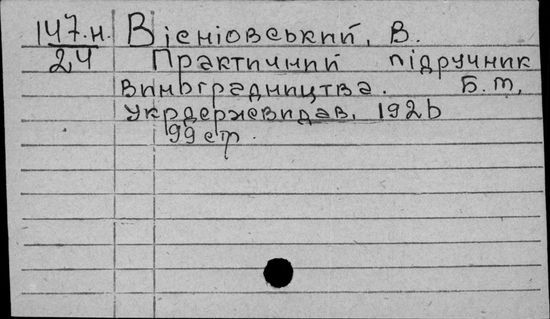 147.н. Вісніовський, В.
24 Практичний підручник
виноградництва. Б.т,
Укрдержвидав, 1926
99 стр.